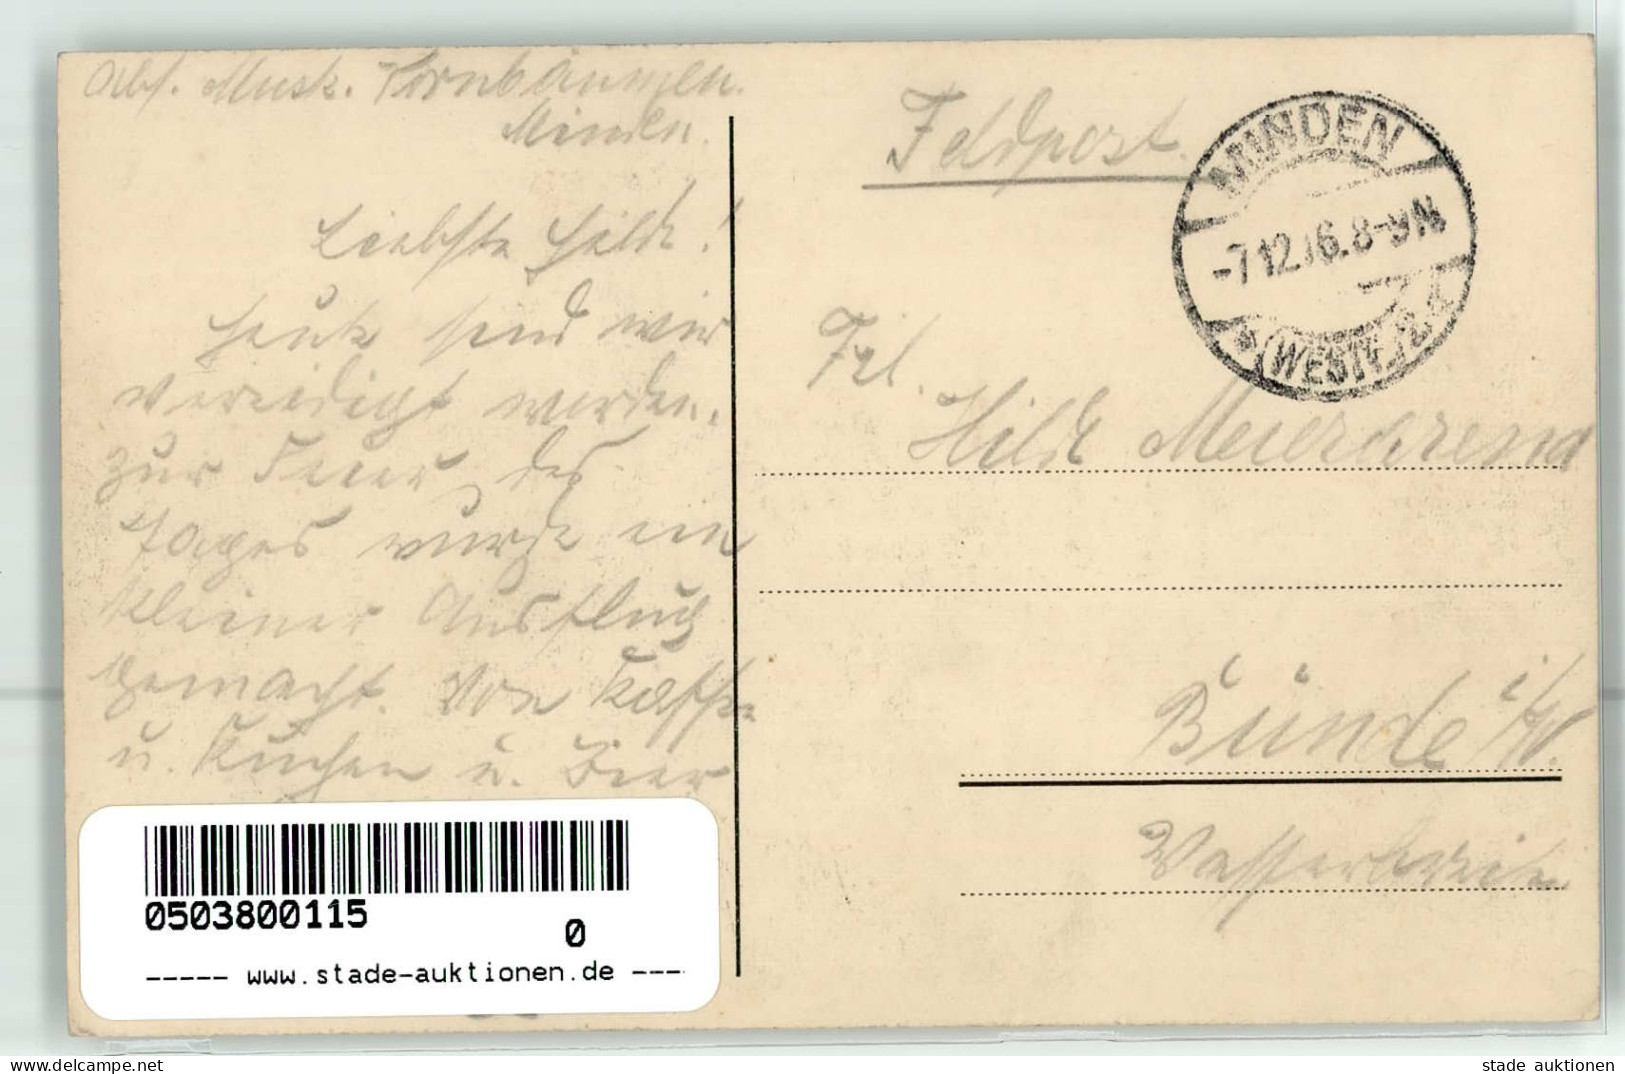 Abs. Musk. Kornbäumen.
Minden.
Liebste Hilde!
Heute sind wir
vereidigt worden.
Zur Feier des
Tages wurde ein
kleiner Ausflug
gemacht. Von Kaffee
u. Kuchen u. Bier
Feldpost.
MINDEN
-7.12.16.8-9N
* (WESTF.) 2 *
Frl.
Hilde Meierarend
Bünde i/W.
0503800115
0
----- www.stade-auktionen.de ----
stade auktionen
www.ansichtskartenversand.com